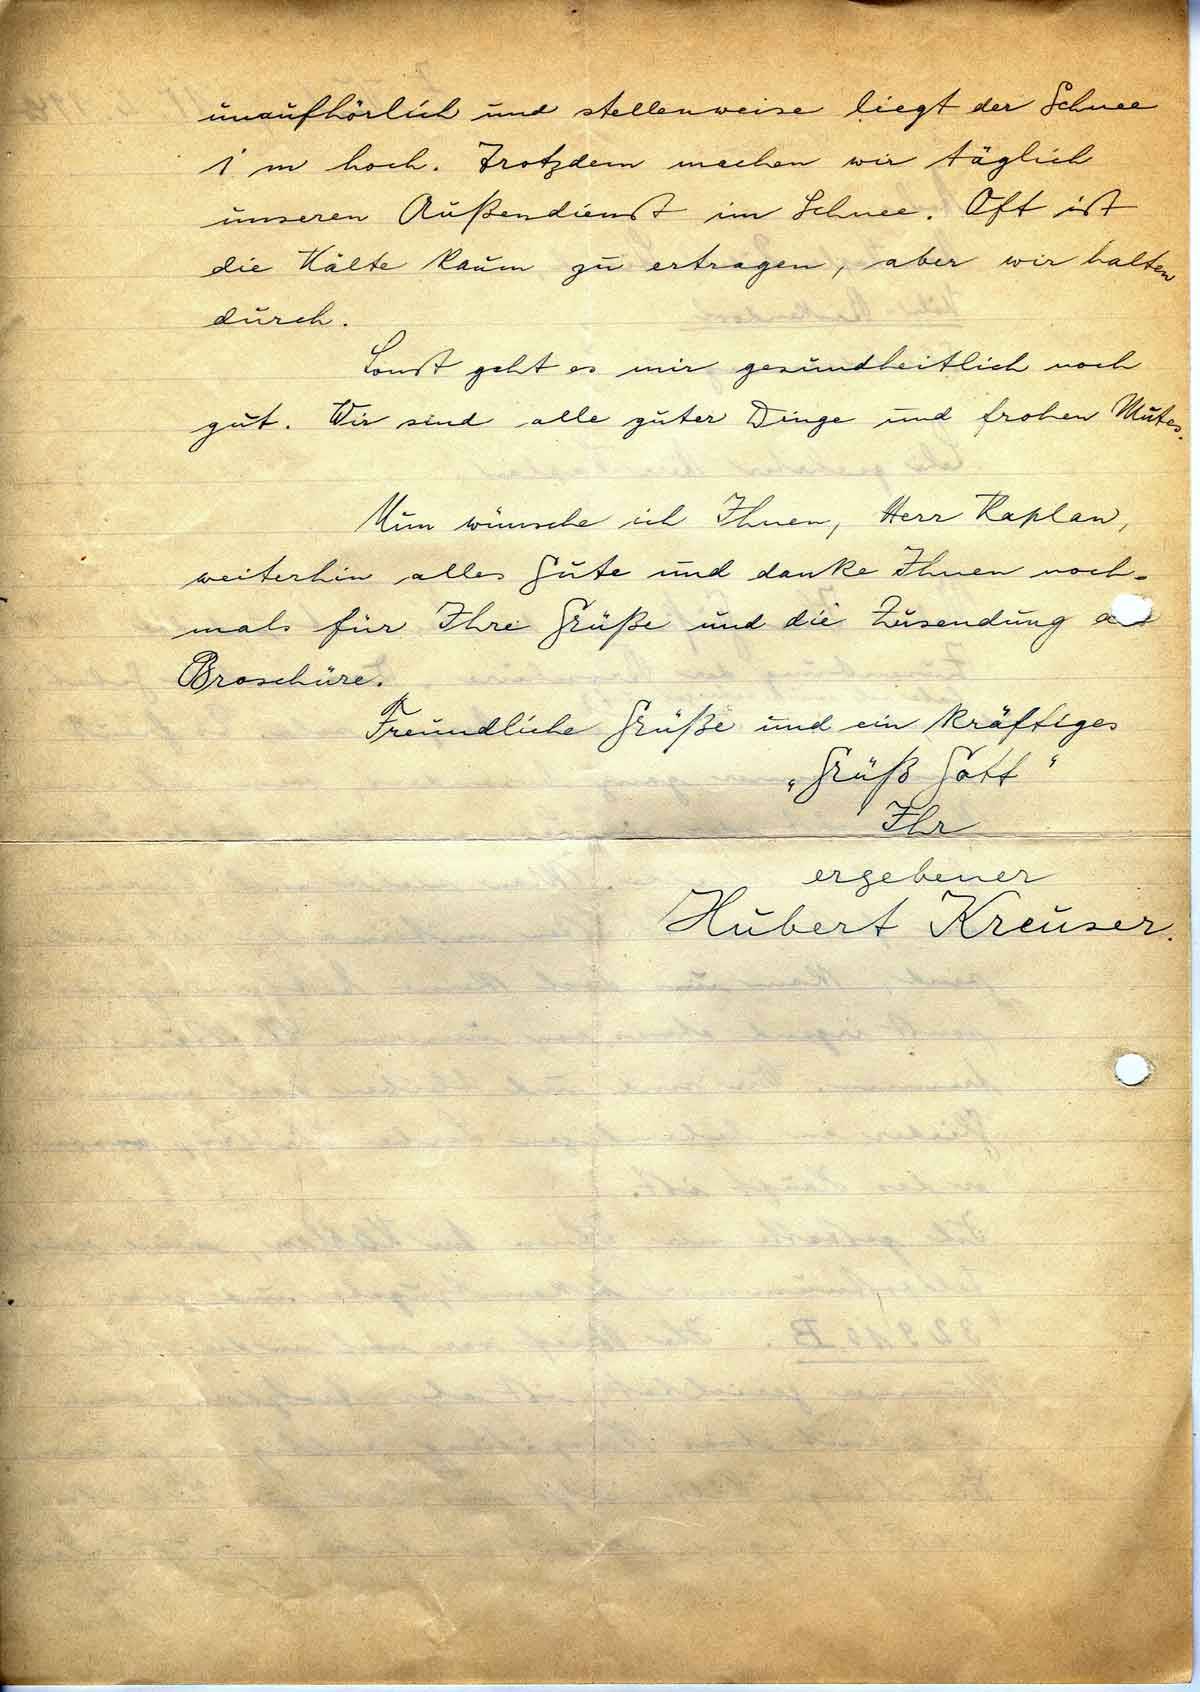 unaufhörlich und stellenweise liegt der Schnee
1 m hoch. Trotzdem machen wir täglich
unseren Außendienst im Schnee. Oft ist
die Kälte kaum zu ertragen, aber wir halten
durch.
Sonst geht es mir gesundheitlich noch
gut. Wir sind alle guter Dinge und frohen Mutes.
Nun wünsche ich Ihnen, Herr Kaplan,
weiterhin alles Gute und danke Ihnen noch-
mals für Ihre Grüße und die Zusendung
Broschüre.
Freundliche Grüße und ein kräftiges
„Grüß Gott“
Ihr
ergebener
Hubert Kreuser.